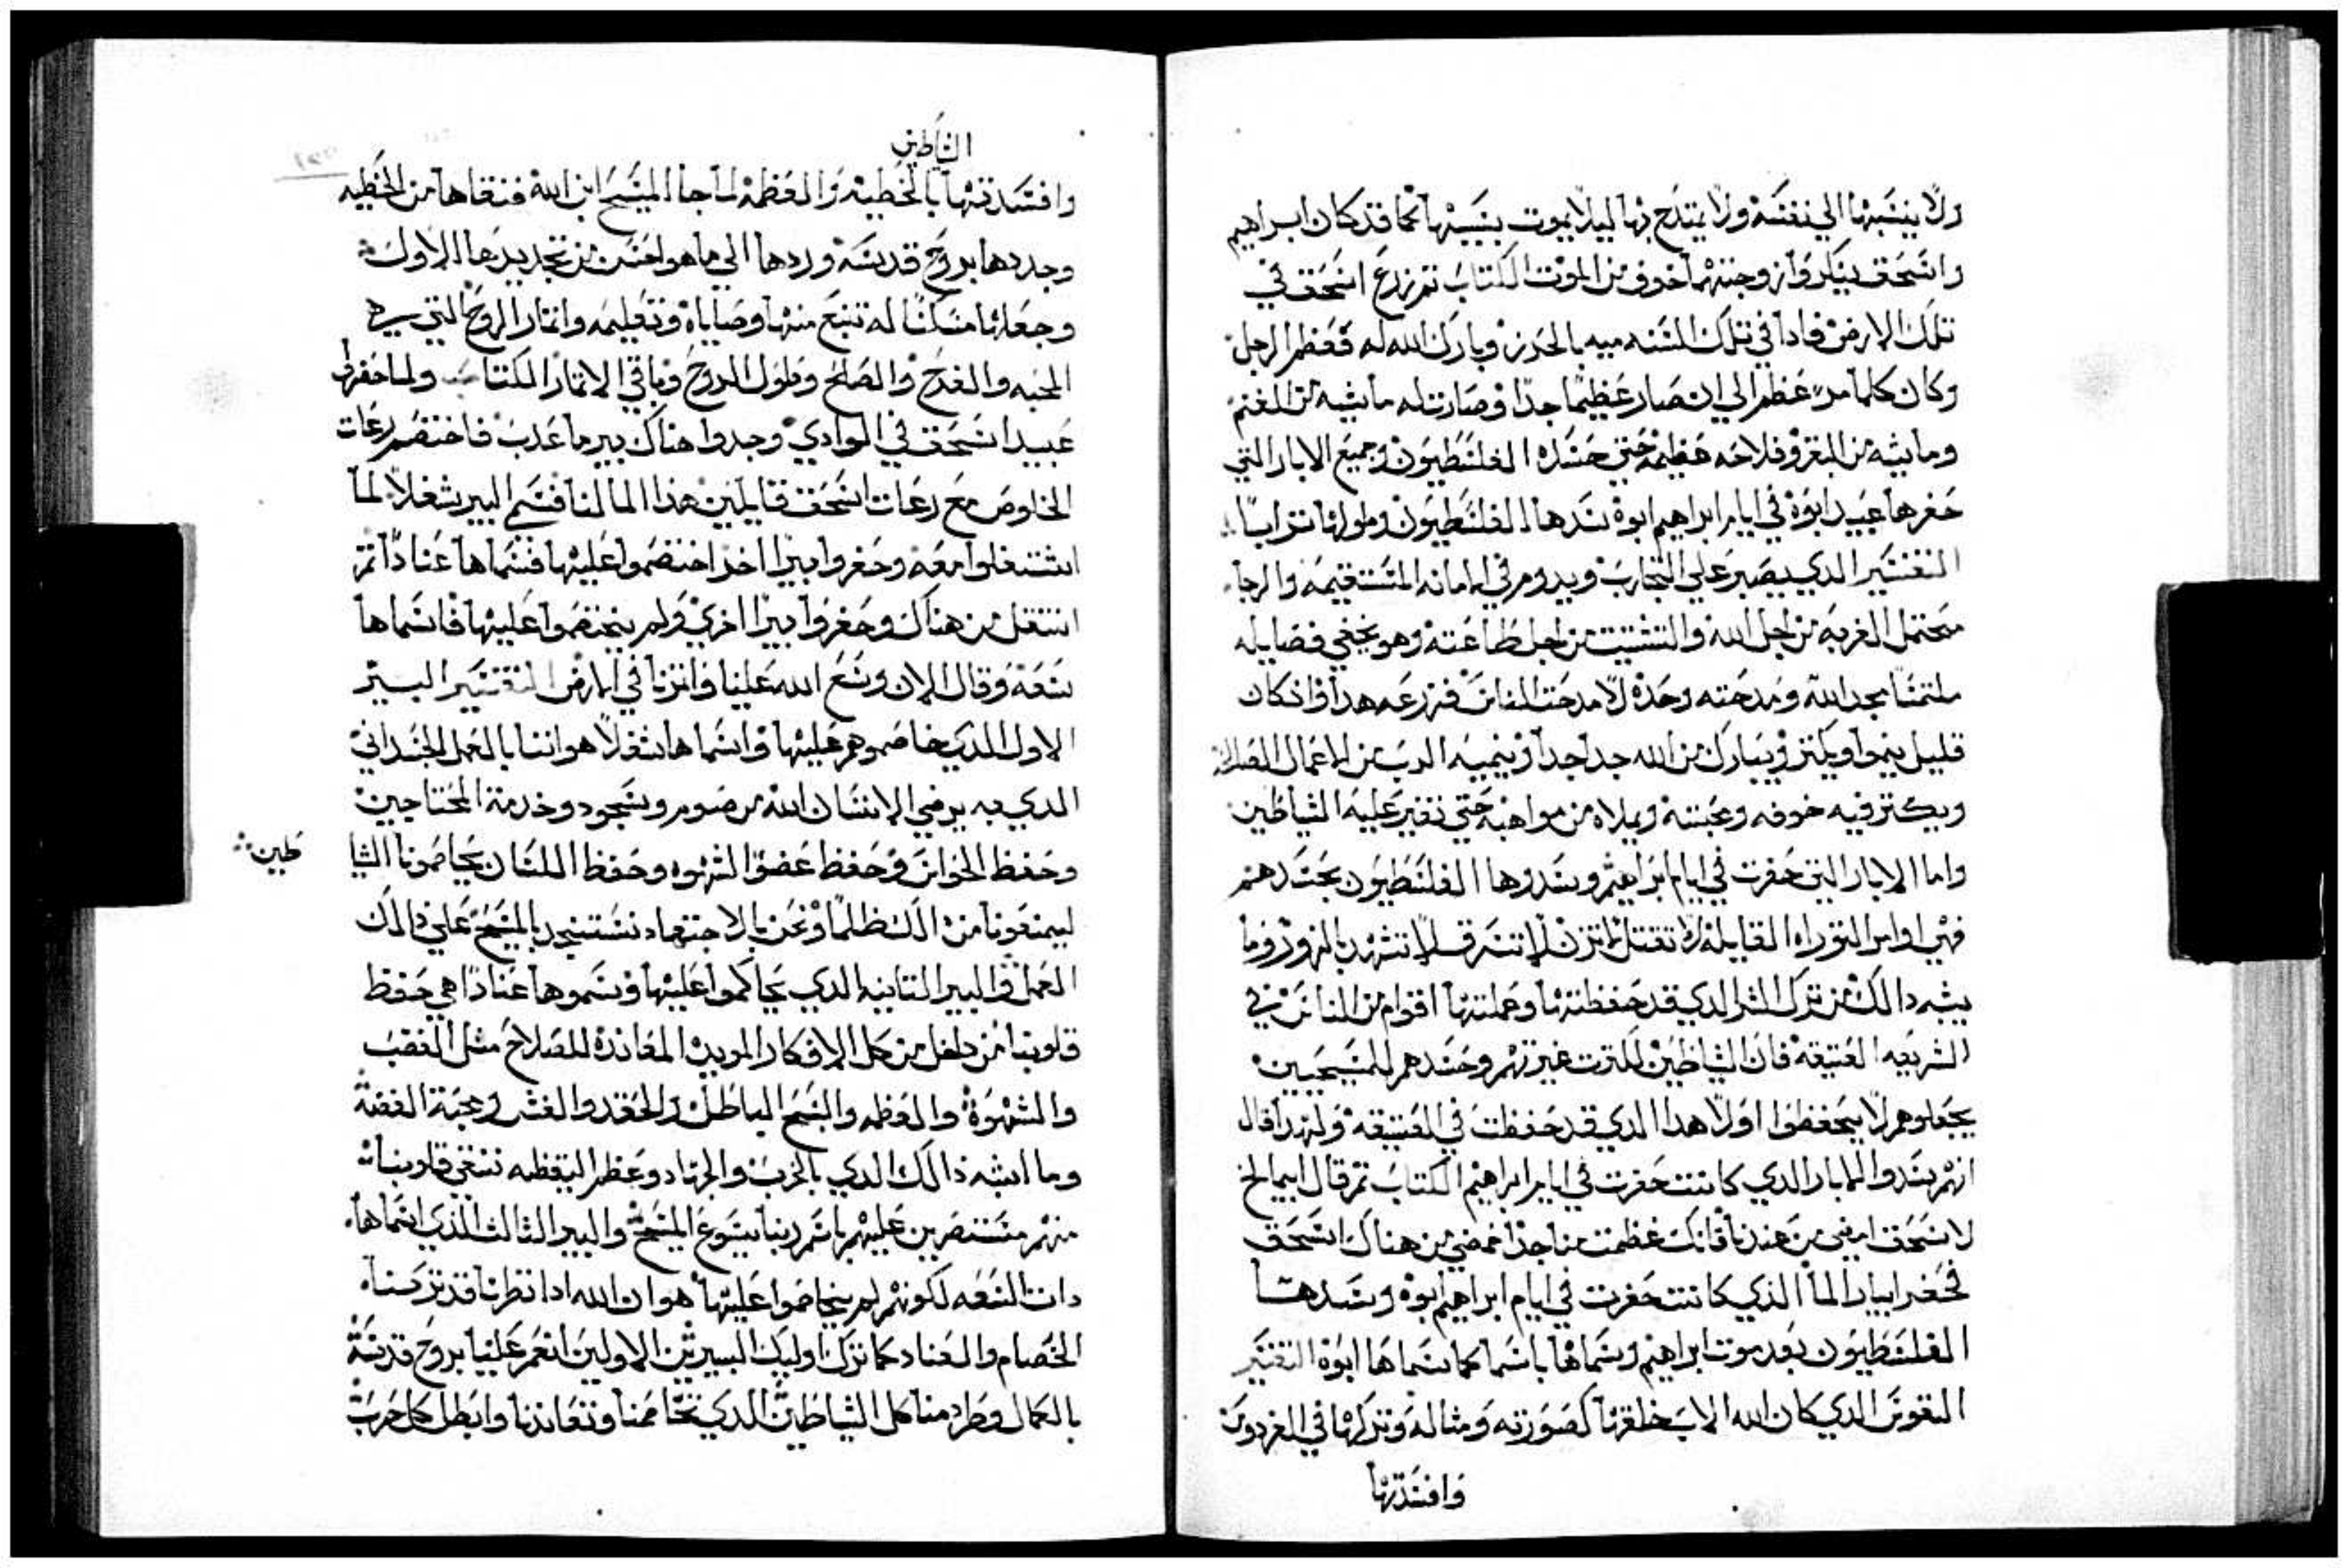 ولا ينسبها الي نفسه ولا يمتدح بها ليلا يموت بسببها كما قد كان ابراهيم
واسحق ينكروا زوجتهما خوف من الموت الكتاب تم زرع اسحق في
تلك الارض فادا في تلك السنه ميه بالحزر وبارك الله له فعظم الرجل
وكان كلما مر عظم الي ان صار عظيمًا جدًا وصارت له ماشيه من الغنم
وماشيه من البقر وفلاحه عظيمه حتي حسده الفلسطيون وجميع الابار التي
حفرها عبيد ابوه في ايام ابراهيم ابوه سدها الفلسطيون وملوها ترابًا
التفسير الدي يصبر علي التجارب ويدوم في الامانه المستقيمه والرجا
محتمل الغربه من اجل الله والتشتيت من اجل طاعته وهو يخفي فضايله
ملتمسًا مجد الله ومدحته وحده لا مدحت الناس فزرعه هدا وان كان
قليل ينموا ويكتر ويبارك من الله جدا جدا وينميه الرب من الاعمال الصالحه
ويكتر فيه خوفه ومحبته ويملاه من مواهبه حتي تغير عليه الشياطين
واما الابار التي حفرت في ايام ابراهيم وسدوها الفلسطيون بحسدهم
فهي اوامر التوراه القايله لا تقتل لا تزن لا تسرق لا تشهد بالزور وما
يشبه دالك من ترك الشر الدي قد حفظتها وعملتها اقوام من الناس في
الشريعه العتيقه فان الشياطين لكترت غيرتهم وحسدهم للمسيحيين
يجعلوهم لا يتحفظوا اولا هدا الدي قد حفظت في العتيقه ولهدا قال
انهم سدوا الابار الدي كانت حفرت في ايام ابراهيم الكتاب تم قال ابيمالخ
لاسحق امضي من عندنا فانك عظمت منا جدًا فمضي من هناك اسحق
فحفر ابيار الما الذي كانت حفرت في ايام ابراهيم ابوه وسدها
الفلسطيون بعد موت ابراهيم وسماها باسما كما سماها ابوه التفسير
النفوس الدي كان الله الاب خلقها كصورته ومثاله وتركها في الفردوس
وافسدتها
الشياطين
وافسدتها بالخطيه والعظمه لما جا المسيح ابن الله فنقاها من الخطيه
وجددها بروح قدسه وردها الي ما هو احسن من تجديدها الاول
وجعلها مسكنًا له تنبع منها وصاياه وتعليمه واتمار الروح التي
المحبه والفرح والصلح وطول الروح وباقي الاتمار الكتاب ولما حفروا
عبيد اسحق في الوادي وجدوا هناك بير ما عدب فاختصم رعات
الخلوص مع رعات اسحق قايلين هذا الما لنا فسم البير شغلا لما
اشتغلوا معه وحفروا بيرا اخر اختصموا عليها فسماها عنادًا تم
انتقل من هناك وحفروا بيرا اخري ولم يختصموا عليها فاسماها
سعه وقال الان وسع الله علينا وانزنا في الارض التفسير البير
الاول الذي خاصموهم عليها واسماها شغلا هو اننا بالعمل الجسداني
الدي به يرضي الانسان الله من صوم وسجود وخدمة المحتاجين
وحفظ الحواس وحفظ عضو الشهوه وحفظ اللسان يخاصمونا الشيا
طين
ليمنعونا من دالك ظلمًا ونحن بالاجتهاد نستنجد بالمسيح علي دالك
العمل والبير التانيه الدي تحاكموا عليها وسموها عنادًا هي حفظ
قلوبنا من داخل من كل الافكار الرديه المعانده للصلاح مثل الغضب
والشهوة والعظمه والسبح الباطل والحقد والغش ومحبة الفضة
وما اشبه ذالك الدي بالحرب والجهاد وعظم اليقظه ننقي قلوبنا
منهم مستنصرين عليهم باسم ربنا يسوع المسيح والبير الثالث الذي اسماها
دات السعه لكونهم لم يتخاصموا عليها هو ان الله ادا نظرنا قد تركنا
الخصام والعناد كما ترك اوليك البيرين الاولين انعم علينا بروح قدسه
بالكمال وطرد منا كل الشياطين الدي تخاصمنا وتعاندنا وابطل كل حرب